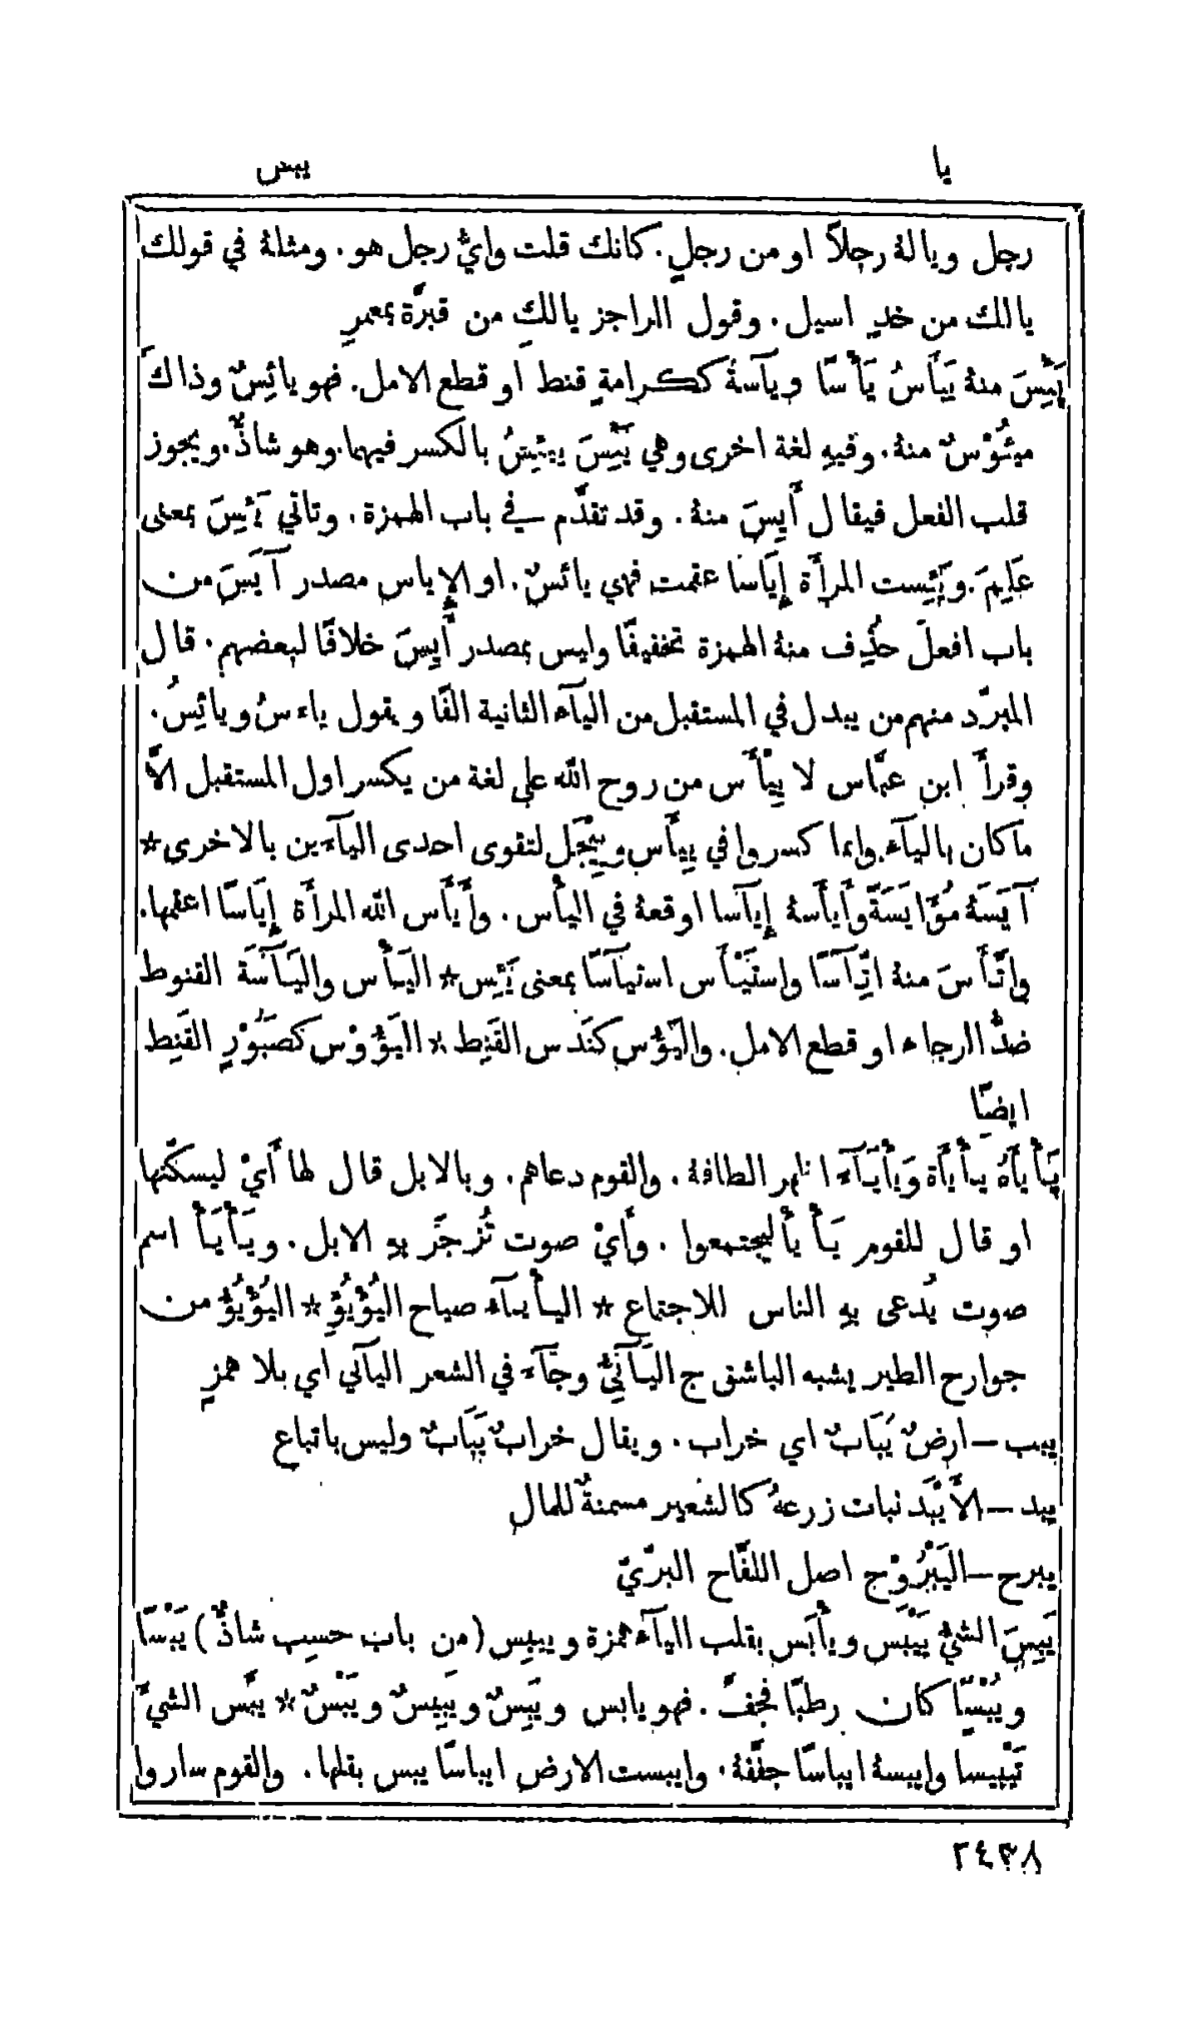 يا
يبس
رجل ويا لهُ رجلاً او من رجلٍ. كانك قلت وايُّ رجل هو. ومثلهُ في قولك
يا لك من خدٍ اسيل. وقول الراجز يا لكِ من قبرَّة بمعمرِ
يَئِسَ منهُ يَيأَسُ يَأْسًا ويآسةً ككرامةٍ قنط او قطع الامل. فهو يائِسٌ وذاكَ
ميئُوْسٌ منهُ. وفيهِ لغة اخرى وهي يَئِسَ ييئِسُ بالكسر فيهما. وهو شاذٌّ. ويجوز
قلب الفعل فيقال أَيِسَ منهُ. وقد تقدَّم في باب الهمزة. وتاتي يَئِسَ بمعنى
عَلِمَ. ويَئِست المرأَة إِيَاسًا عقمت فهي يائسٌ. او الإِياس مصدر آيَسَ من
باب افعلَ حُذِف منهُ الهمزة تخفيفًا وليس بمصدر أَيِسَ خلافًا لبعضهم. قال
المبرّد منهم من يبدل في المستقبل من اليآء الثانية الفًا ويقول ياءسُ ويائِسُ.
وقرأَ ابن عبَّاس لا يِيْأَس من روح الله على لغة من يكسر اول المستقبل الاَّ
ما كان باليآء. وانما كسروا في يِيأَس ويِيْجَل لتقوى احدى اليآءين بالاخرى *
آيَسَهُ مُؤَايَسَةً وأَيأَسهُ إِيآسا اوقعهُ في اليأْس. وأَيأَس الله المرأَة إِيَاسًا اعقمها.
واتَّأَسَ منهُ اتِّآسًا واستَيْأَس استيآسًا بمعنى يَئِس * اليَأْس واليَآسَة القنوط
ضدُّ الرجاء او قطع الامل. واليَؤُس كنَدُس القَنِط * اليَؤُوْس كصَبُوْرٍ القَنِط
ايضًا
يَأْيَأَهُ يَأْيَأَة ويَأْيَآءً اظهر الطافهُ. والقوم دعاهم. وبالابل قال لها أَيْ ليسكّنها
او قال للقوم يَأْ يَأْ ليجتمعوا. وأَيْ صوت تُزجَر بهِ الابل. ويَأْيَأْ اسم
صوت يُدعى بهِ الناس للاجتماع * اليأْيآء صياح اليُؤْيُؤِ * اليُؤْيُؤ من
جوارح الطير يشبه الباشق ج اليَآئِئُ وجآء في الشعر اليآئي اي بلا همزٍ
يبب – ارضٌ يَبَابٌ اي خراب. ويقال خرابٌ يَبَابٌ وليس باتباع
يبد – الأَيْبَد نبات زرعهُ كالشعير مسمنةٌ للمال
يبرح – اليَبْرُوْح اصل اللفَّاح البرّيّ
يَبِسَ الشيُ يَيْبَس ويأْبَس بقلب اليآء همزة وييبِس (من باب حسِب شاذٌّ) يَبْسًا
ويُبْسًا كان رطبًا فجفَّ. فهو يابس ويَبِسٌ ويَبِيسٌ ويَبْسٌ * يبَّس الشيَّ
تَيْبِيسا وايبسهُ ايباسًا جفَّفهُ. وايبست الارض ايباسًا يبس بقلها. والقوم ساروا
٢٤٣٨